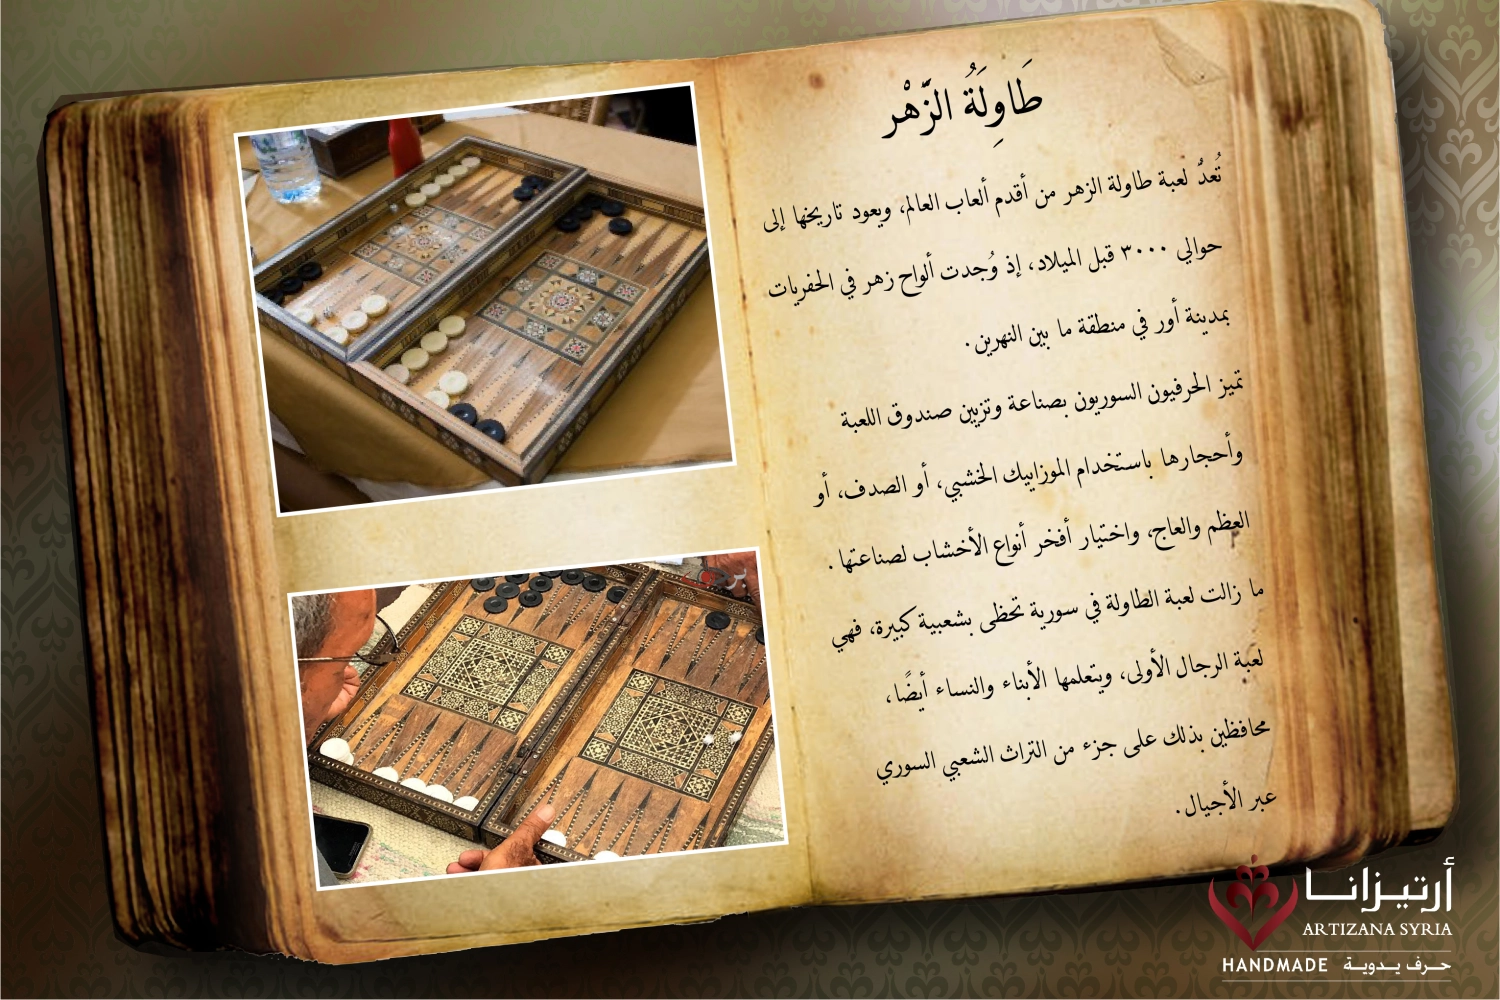 طَاوِلَةُ الزَّهْر
تُعدُّ لعبة طاولة الزهر من أقدم ألعاب العالم، ويعود تاريخها إلى
حوالي ٣٠٠٠ قبل الميلاد، إذ وُجدت ألواح زهر في الحفريات
بمدينة أور في منطقة ما بين النهرين.
تميز الحرفيون السوريون بصناعة وتزيين صندوق اللعبة
وأحجارها باستخدام الموزاييك الخشبي، أو الصدف، أو
العظم والعاج، واختيار أفخر أنواع الأخشاب لصناعتها.
ما زالت لعبة الطاولة في سورية تحظى بشعبية كبيرة، فهي
لعبة الرجال الأولى، ويتعلمها الأبناء والنساء أيضًا،
محافظين بذلك على جزء من التراث الشعبي السوري
عبر الأجيال.
أرتيزانا
ARTIZANA SYRIA
HANDMADE حرف يدوية